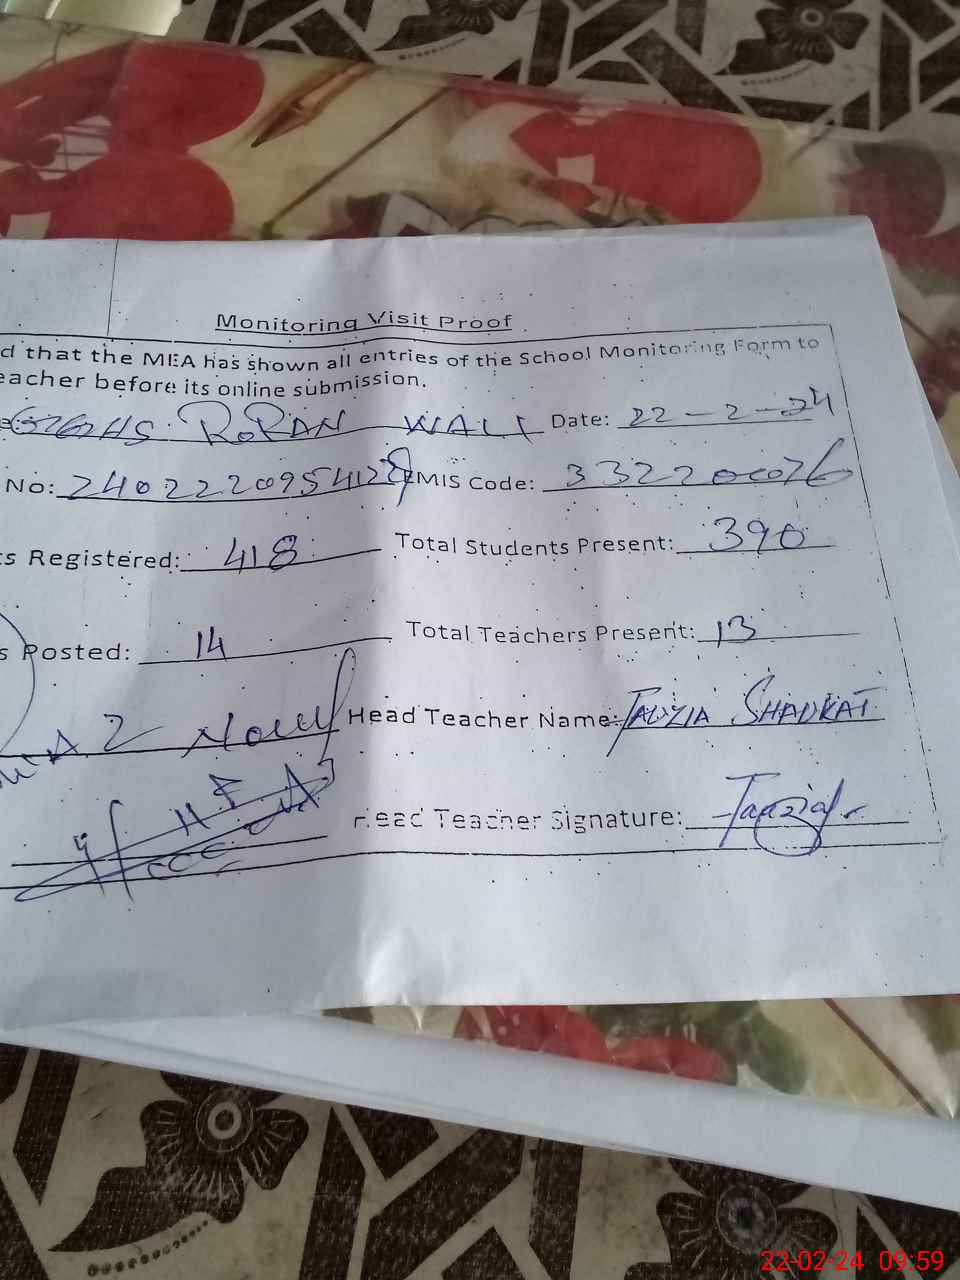 Monitoring Visit Proof
d that the MEA has shown all entries of the School Monitoring Form to
eacher before its online submission.
GGHS RORAN WALI Date: 22-2-24
No: EMIS Code: 33220076
s Registered: 418 Total Students Present: 390
s Posted: 14 Total Teachers Present: 13
Head Teacher Name: TAUZIA SHAUKAT
Head Teacher Signature:
22-02-24 09:59